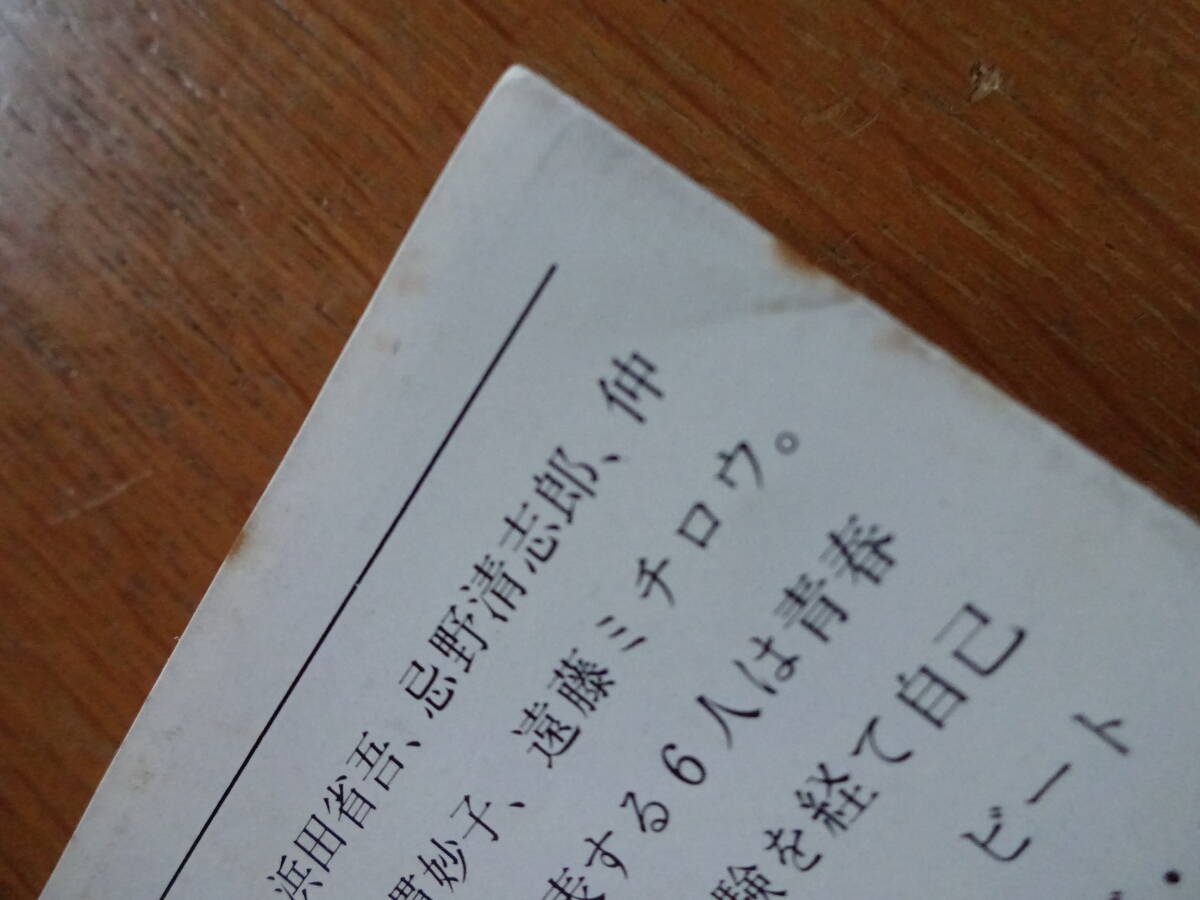 浜田省吾、忌野清志郎、仲
貫妙子、遠藤ミチロウ。
表する6人は青春
験を経て自己
ビート